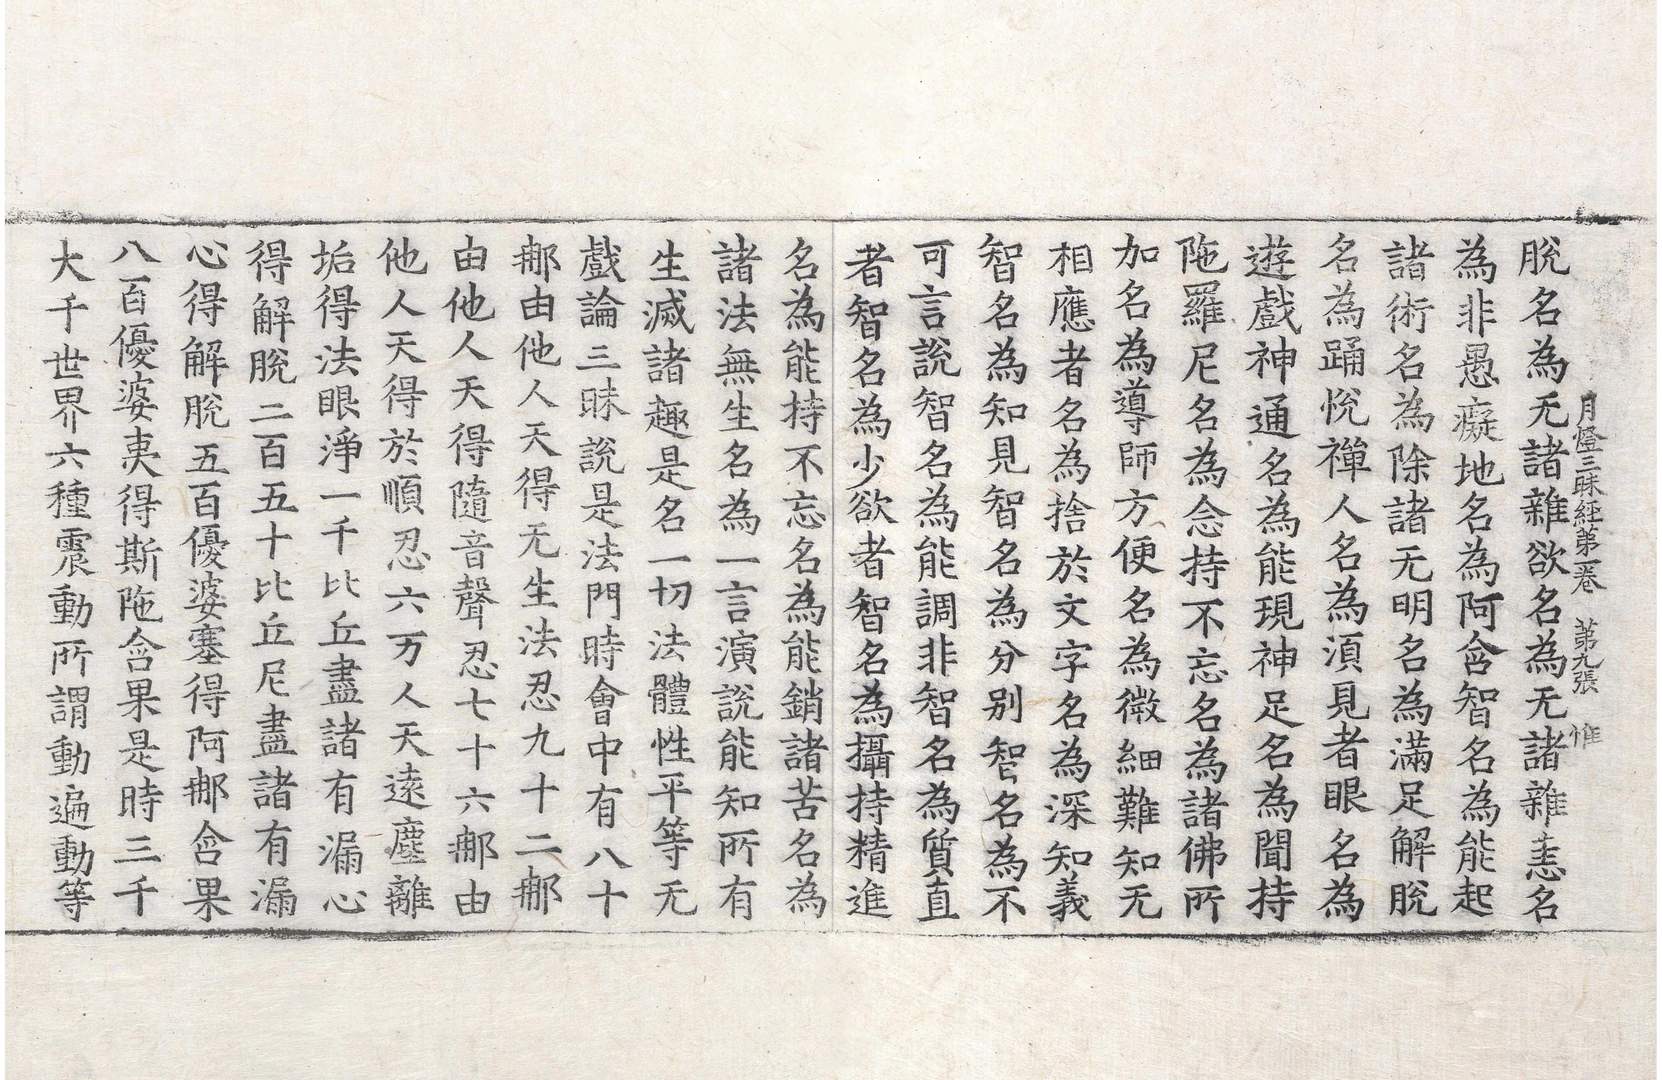 月燈三昧經第一卷　第九張　惟
脫名為无諸雜欲名為无諸雜恚名
為非愚癡地名為阿含智名為能起
諸術名為除諸无明名為滿足解脫
名為踊悅禪人名為須見者眼名為
遊戲神通名為能現神足名為聞持
陁羅尼名為念持不忘名為諸佛所
加名為導師方便名為微細難知无
相應者名為捨於文字名為深知義
智名為知見智名為分別智名為不
可言說智名為能調非智名為質直
者智名為少欲者智名為攝持精進
名為能持不忘名為能銷諸苦名為
諸法無生名為一言演說能知所有
生滅諸趣是名一切法體性平等无
戲論三昧說是法門時會中有八十
那由他人天得无生法忍九十二那
由他人天得隨音聲忍七十六那由
他人天得於順忍六万人天遠塵離
垢得法眼淨一千比丘盡諸有漏心
得解脫二百五十比丘尼盡諸有漏
心得解脫五百優婆塞得阿那含果
八百優婆夷得斯陁含果是時三千
大千世界六種震動所謂動遍動等